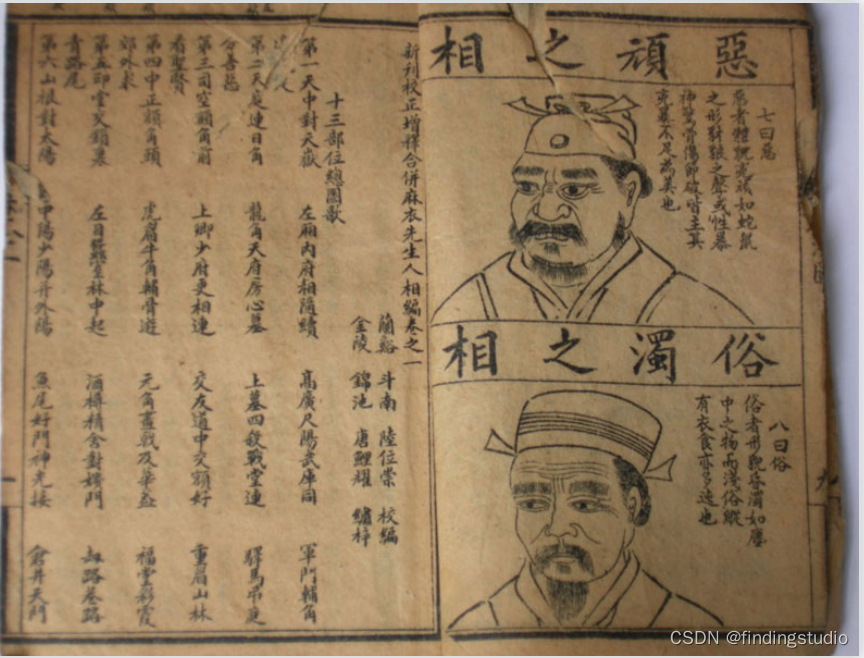 惡頑之相
七曰惡
惡者體貌兇 如蛇鼠
之形豺狼之聲或性暴
神驚骨傷節破皆主其
兇暴不足為美也
俗濁之相
八曰俗
俗者形貌昏濁如塵
中之物而淺俗縱
有衣食亦多迍也
新刊校正增釋合併麻衣先生人相編卷之一
蘭谿 斗南 陸位崇 校編
金陵 錦池 唐鯉耀 繡梓
十三部位總圖歌
第一天中對天嶽 左廂內府相隨續 高廣尺陽武庫同 軍門輔角
第二天庭連日角 龍角天府房心墓 上墓四殺戰堂連 驛馬吊庭
分善惡
第三司空額角前 上卿少府更相連 交友道中交額好 重眉山林
看聖賢
第四中正額角頭 虎眉牛角輔骨遊 元角斧戟及華蓋 福堂彩霞
郊外求
第五印堂交鎖裏 左目蠶室林中起 酒樽精舍對嬪門 劫路巷路
青路尾
第六山根對太陽 中陽少陽并外陽 魚尾奸門神光接 倉井天門
CSDN @findingstudio